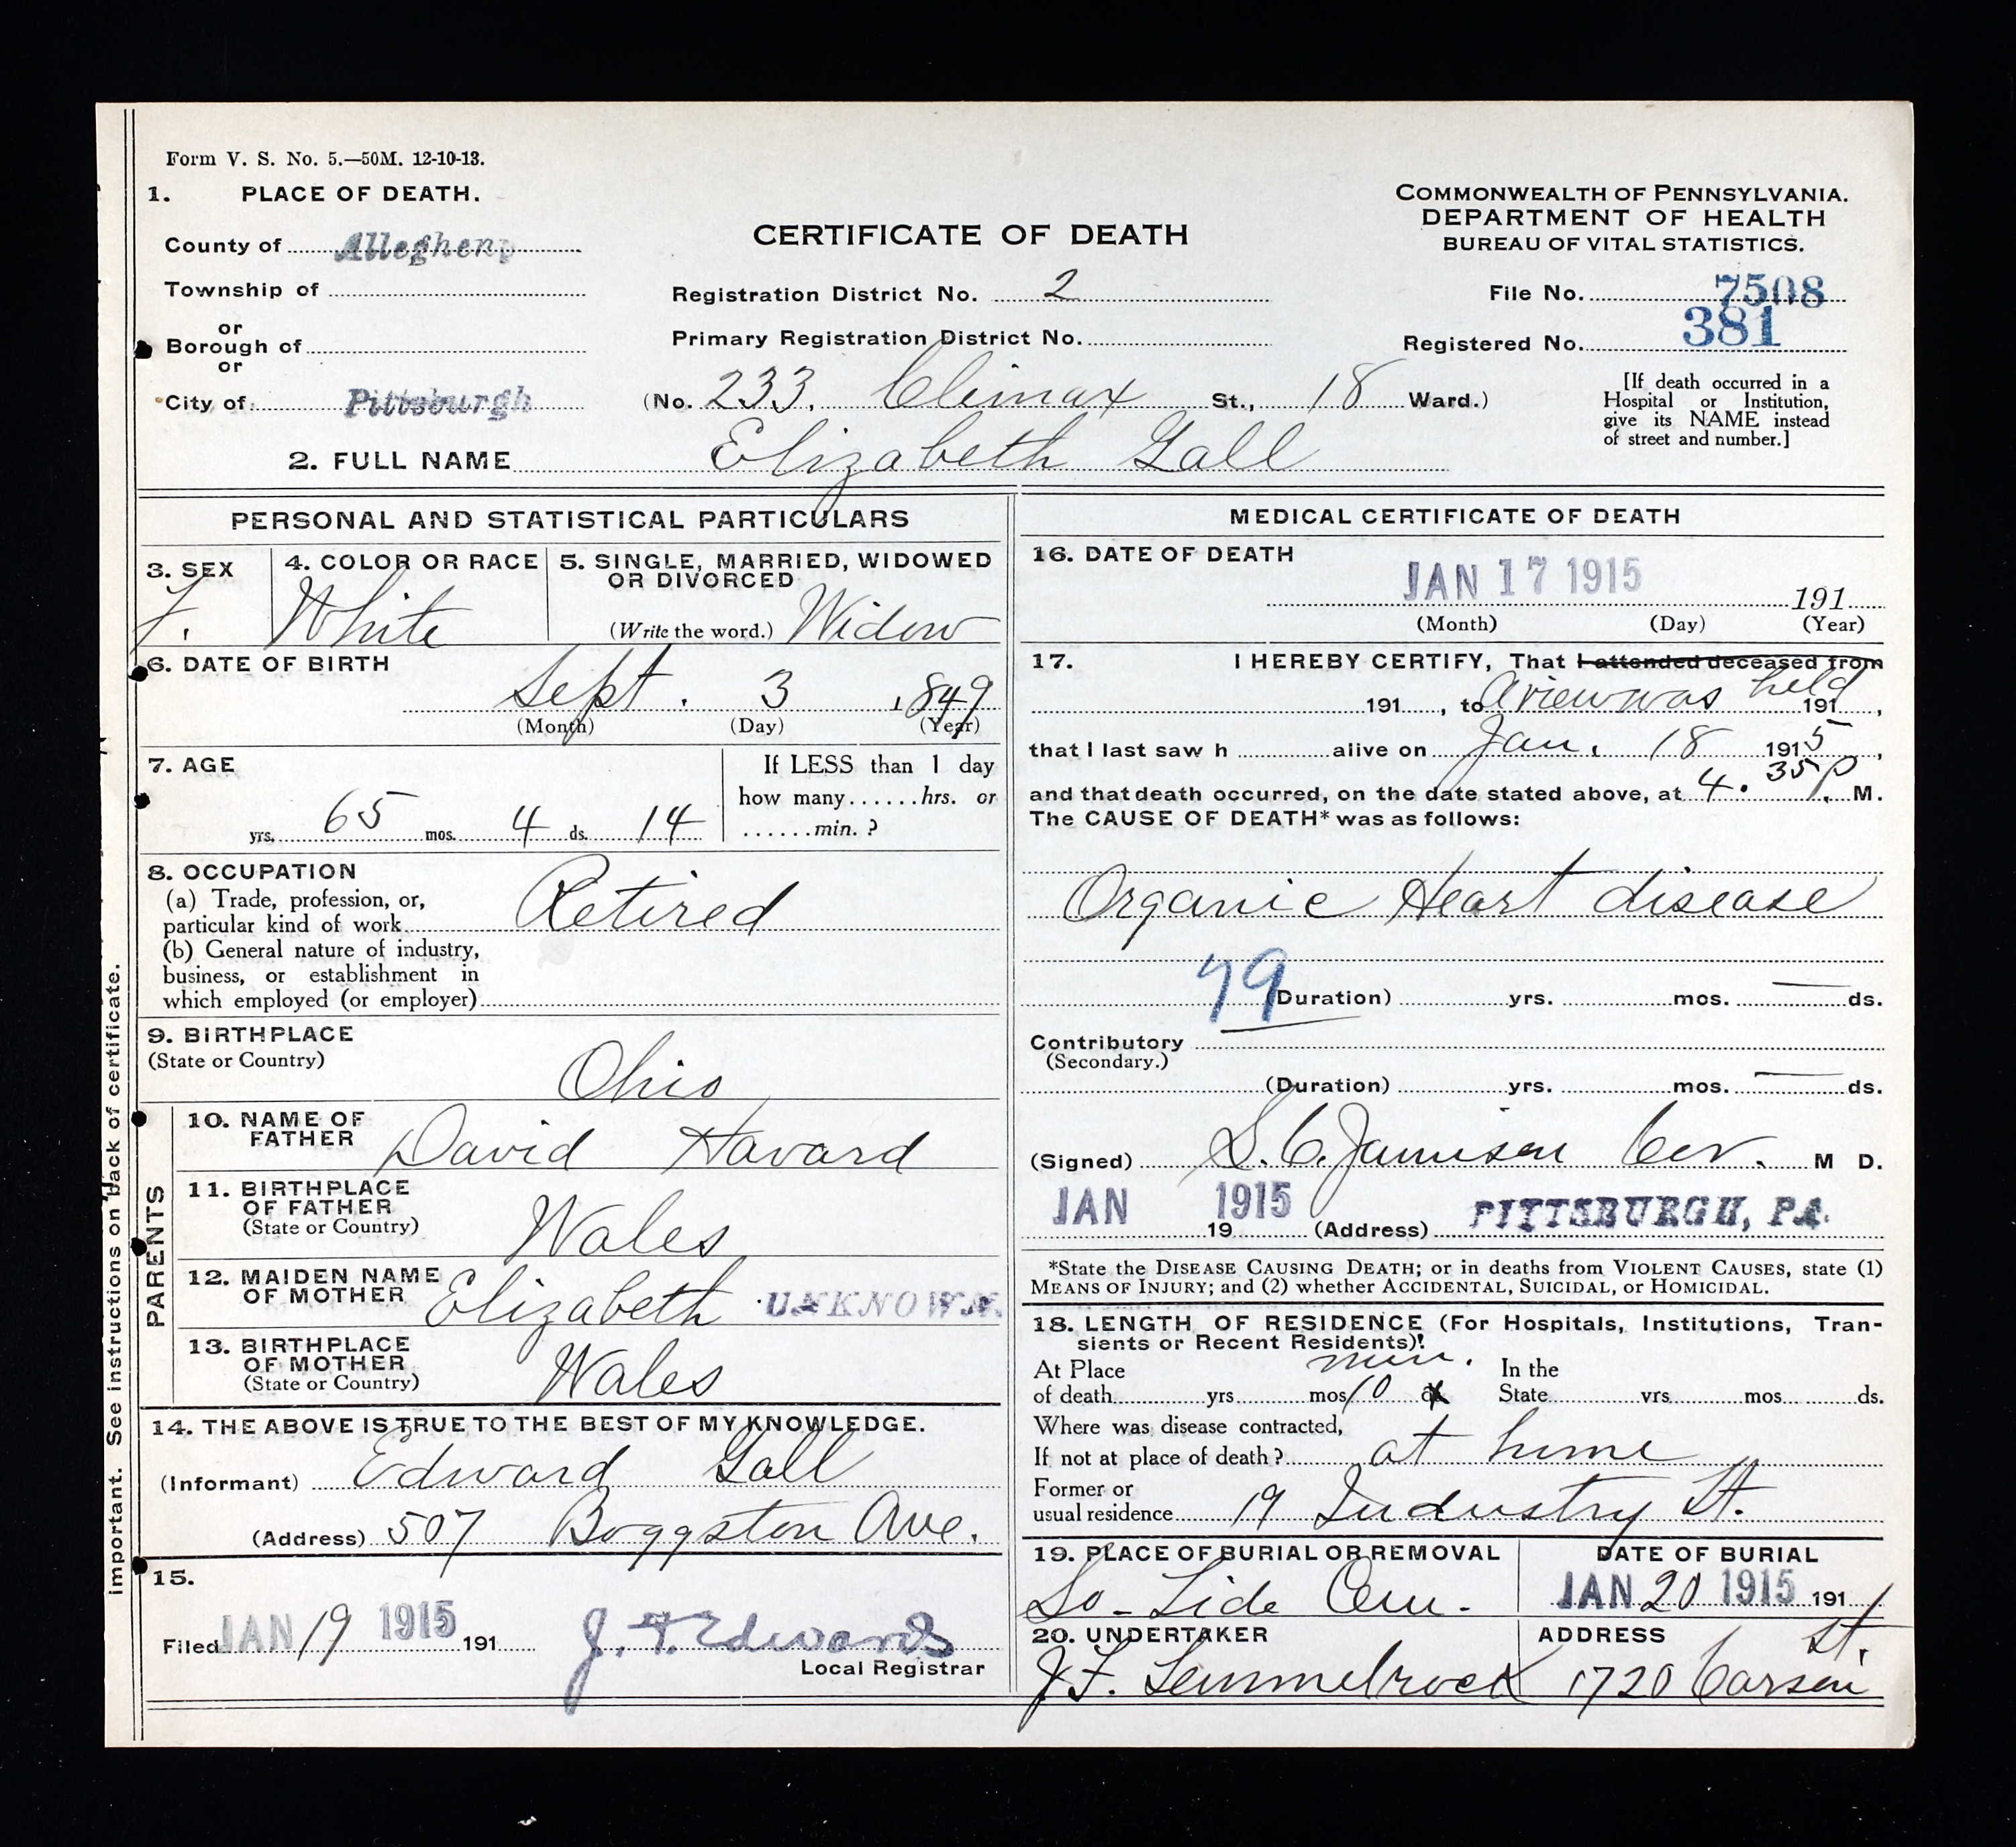 Form V. S. No. 5.—50M. 12-10-13.
1. PLACE OF DEATH.
County of Allegheny
Township of
or
Borough of
or
City of Pittsburgh
CERTIFICATE OF DEATH
Registration District No. 2
Primary Registration District No.
(No. 233. Climax St., 18 Ward.)
COMMONWEALTH OF PENNSYLVANIA.
DEPARTMENT OF HEALTH
BUREAU OF VITAL STATISTICS.
File No. 7508
Registered No. 381
[If death occurred in a
Hospital or Institution,
give its NAME instead
of street and number.]
2. FULL NAME Elizabeth Gall
PERSONAL AND STATISTICAL PARTICULARS
3. SEX
F.
4. COLOR OR RACE
White
5. SINGLE, MARRIED, WIDOWED
OR DIVORCED
(Write the word.) Widow
6. DATE OF BIRTH
Sept. 3 , 1849
(Month) (Day) (Year)
7. AGE
yrs. 65 mos. 4 ds. 14
If LESS than 1 day
how many......hrs. or
......min. ?
8. OCCUPATION
(a) Trade, profession, or,
particular kind of work Retired
(b) General nature of industry,
business, or establishment in
which employed (or employer)
9. BIRTHPLACE
(State or Country)
Ohio
PARENTS
10. NAME OF
FATHER David Havard
11. BIRTHPLACE
OF FATHER
(State or Country) Wales
12. MAIDEN NAME
OF MOTHER Elizabeth UNKNOWN.
13. BIRTHPLACE
OF MOTHER
(State or Country) Wales
14. THE ABOVE IS TRUE TO THE BEST OF MY KNOWLEDGE.
(Informant) Edward Gall
(Address) 507 Boggston Ave.
15.
Filed JAN 19 1915 191
J. F. Edwards
Local Registrar
important. See instructions on back of certificate.
MEDICAL CERTIFICATE OF DEATH
16. DATE OF DEATH
JAN 17 1915 191
(Month) (Day) (Year)
17. I HEREBY CERTIFY, That I attended deceased from
191 , to A view was held 191 ,
that I last saw h alive on Jan. 18 1915 ,
and that death occurred, on the date stated above, at 4.35 P. M.
The CAUSE OF DEATH* was as follows:
Organic Heart disease
79
(Duration) yrs. mos. — ds.
Contributory
(Secondary.)
(Duration) yrs. mos. — ds.
(Signed) S. C. Jamison Cor. M D.
JAN 1915 19 (Address) PITTSBURGH, PA.
*State the DISEASE CAUSING DEATH; or in deaths from VIOLENT CAUSES, state (1)
MEANS OF INJURY; and (2) whether ACCIDENTAL, SUICIDAL, or HOMICIDAL.
18. LENGTH OF RESIDENCE (For Hospitals, Institutions, Tran-
sients or Recent Residents)!
At Place min. In the
of death yrs mos 10 ds State yrs mos ds.
Where was disease contracted,
If not at place of death? at home
Former or
usual residence 19 Industry St.
19. PLACE OF BURIAL OR REMOVAL
So-Side Cem.
DATE OF BURIAL
JAN 20 1915 191
20. UNDERTAKER
J. F. Semmelrock
ADDRESS
1720 Carson St.